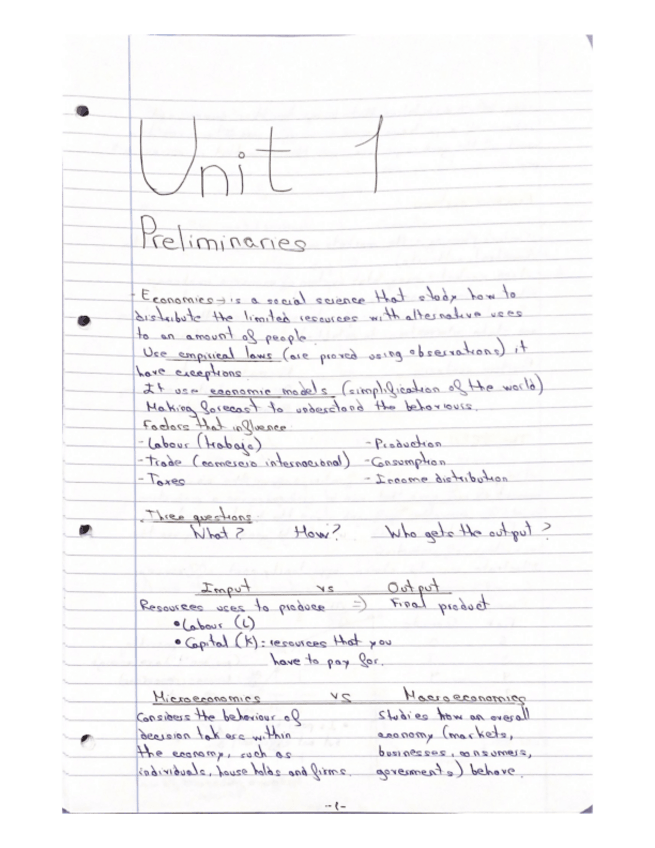 Unit 1
Preliminaries
- Economics → is a social science that study how to
distribute the limited resources with alternative uses
to an amount of people.
Use empirical laws (are proved using observations) it
have exceptions
It use economic models (simplification of the world)
Making forecast to understand the behaviours.
Factors that influence
- Labour (trabajo) - Production
- Trade (comercio internacional) - Consumption
- Taxes - Income distribution
. Three questions
What? How? Who gets the output?
Imput vs Output
Resources uses to produce => Final product
• Labour (L)
• Capital (K): resources that you
have to pay for.
Microeconomics vs Macroeconomics
Considers the behaviour of studies how an overall
decision takers within economy (markets,
the economy, such as businesses, consumers,
individuals, house holds and firms. goverments) behave.
-1-